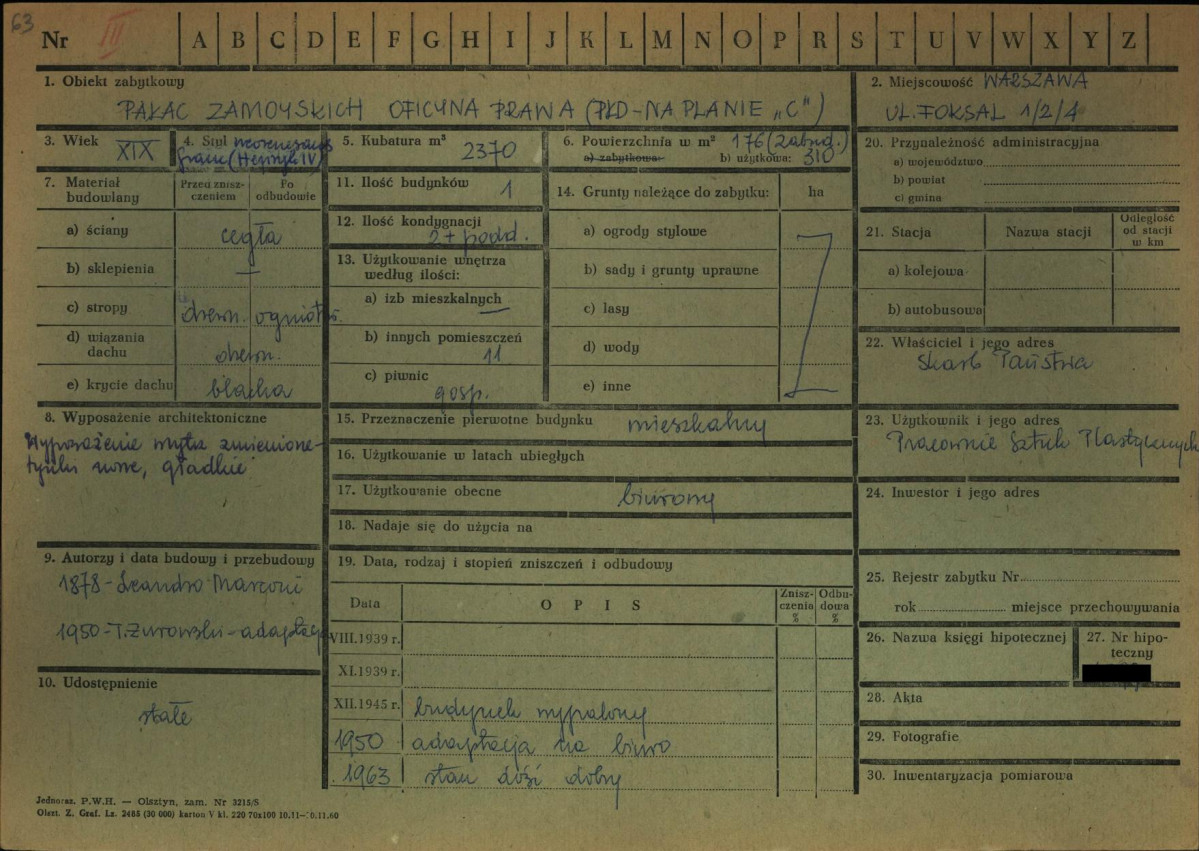 63
Nr III A B C D E F G H I J K L M N O P R S T U V W X Y Z
1. Obiekt zabytkowy
PAŁAC ZAMOYSKICH OFICYNA PRAWA (PŁD-NA PLANIE „C")
2. Miejscowość WARSZAWA
UL. FOKSAL 1/2/4
3. Wiek XIX
4. Styl neorenesans
franc (Henryk IV)
5. Kubatura m³ 2370
6. Powierzchnia w m² 176 (zabud.)
a) zabytkowa: b) użytkowa: 310
7. Materiał budowlany
Przed znisz-
czeniem
Po
odbudowie
a) ściany cegła
b) sklepienia —
c) stropy drewn. ogniotr.
d) wiązania
dachu drewn.
e) krycie dachu blacha
8. Wyposażenie architektoniczne
Wyposażenie wnętrz zmienione-
tynki nowe, gładkie
9. Autorzy i data budowy i przebudowy
1878 - Leandro Marconi
1950 - T. Żurowski - adaptacja
10. Udostępnienie
stałe
11. Ilość budynków 1
12. Ilość kondygnacji
2 + podd.
13. Użytkowanie wnętrza
według ilości:
a) izb mieszkalnych —
b) innych pomieszczeń
11
c) piwnic
gosp.
14. Grunty należące do zabytku: ha
a) ogrody stylowe
b) sady i grunty uprawne
c) lasy
d) wody
e) inne
15. Przeznaczenie pierwotne budynku mieszkalny
16. Użytkowanie w latach ubiegłych
17. Użytkowanie obecne biurowy
18. Nadaje się do użycia na
19. Data, rodzaj i stopień zniszczeń i odbudowy
Data OPIS
Znisz-
czenia
%
Odbu-
dowa
%
VIII.1939 r.
XI.1939 r.
XII.1945 r. budynek wypalony
1950 adaptacja na biuro
1963 stan dość dobry
20. Przynależność administracyjna
a) województwo
b) powiat
c) gmina
21. Stacja Nazwa stacji
Odległość
od stacji
w km
a) kolejowa
b) autobusowa
22. Właściciel i jego adres
Skarb Państwa
23. Użytkownik i jego adres
Pracownie Sztuk Plastycznych
24. Inwestor i jego adres
25. Rejestr zabytku Nr
rok miejsce przechowywania
26. Nazwa księgi hipotecznej
27. Nr hipo-
teczny
28. Akta
29. Fotografie
30. Inwentaryzacja pomiarowa
Jednoraz. P.W.H. — Olsztyn, zam. Nr 3215/S
Olszt. Z. Graf. Lz. 2485 (30 000) karton V kl. 220 70x100 10.11—10.11.60